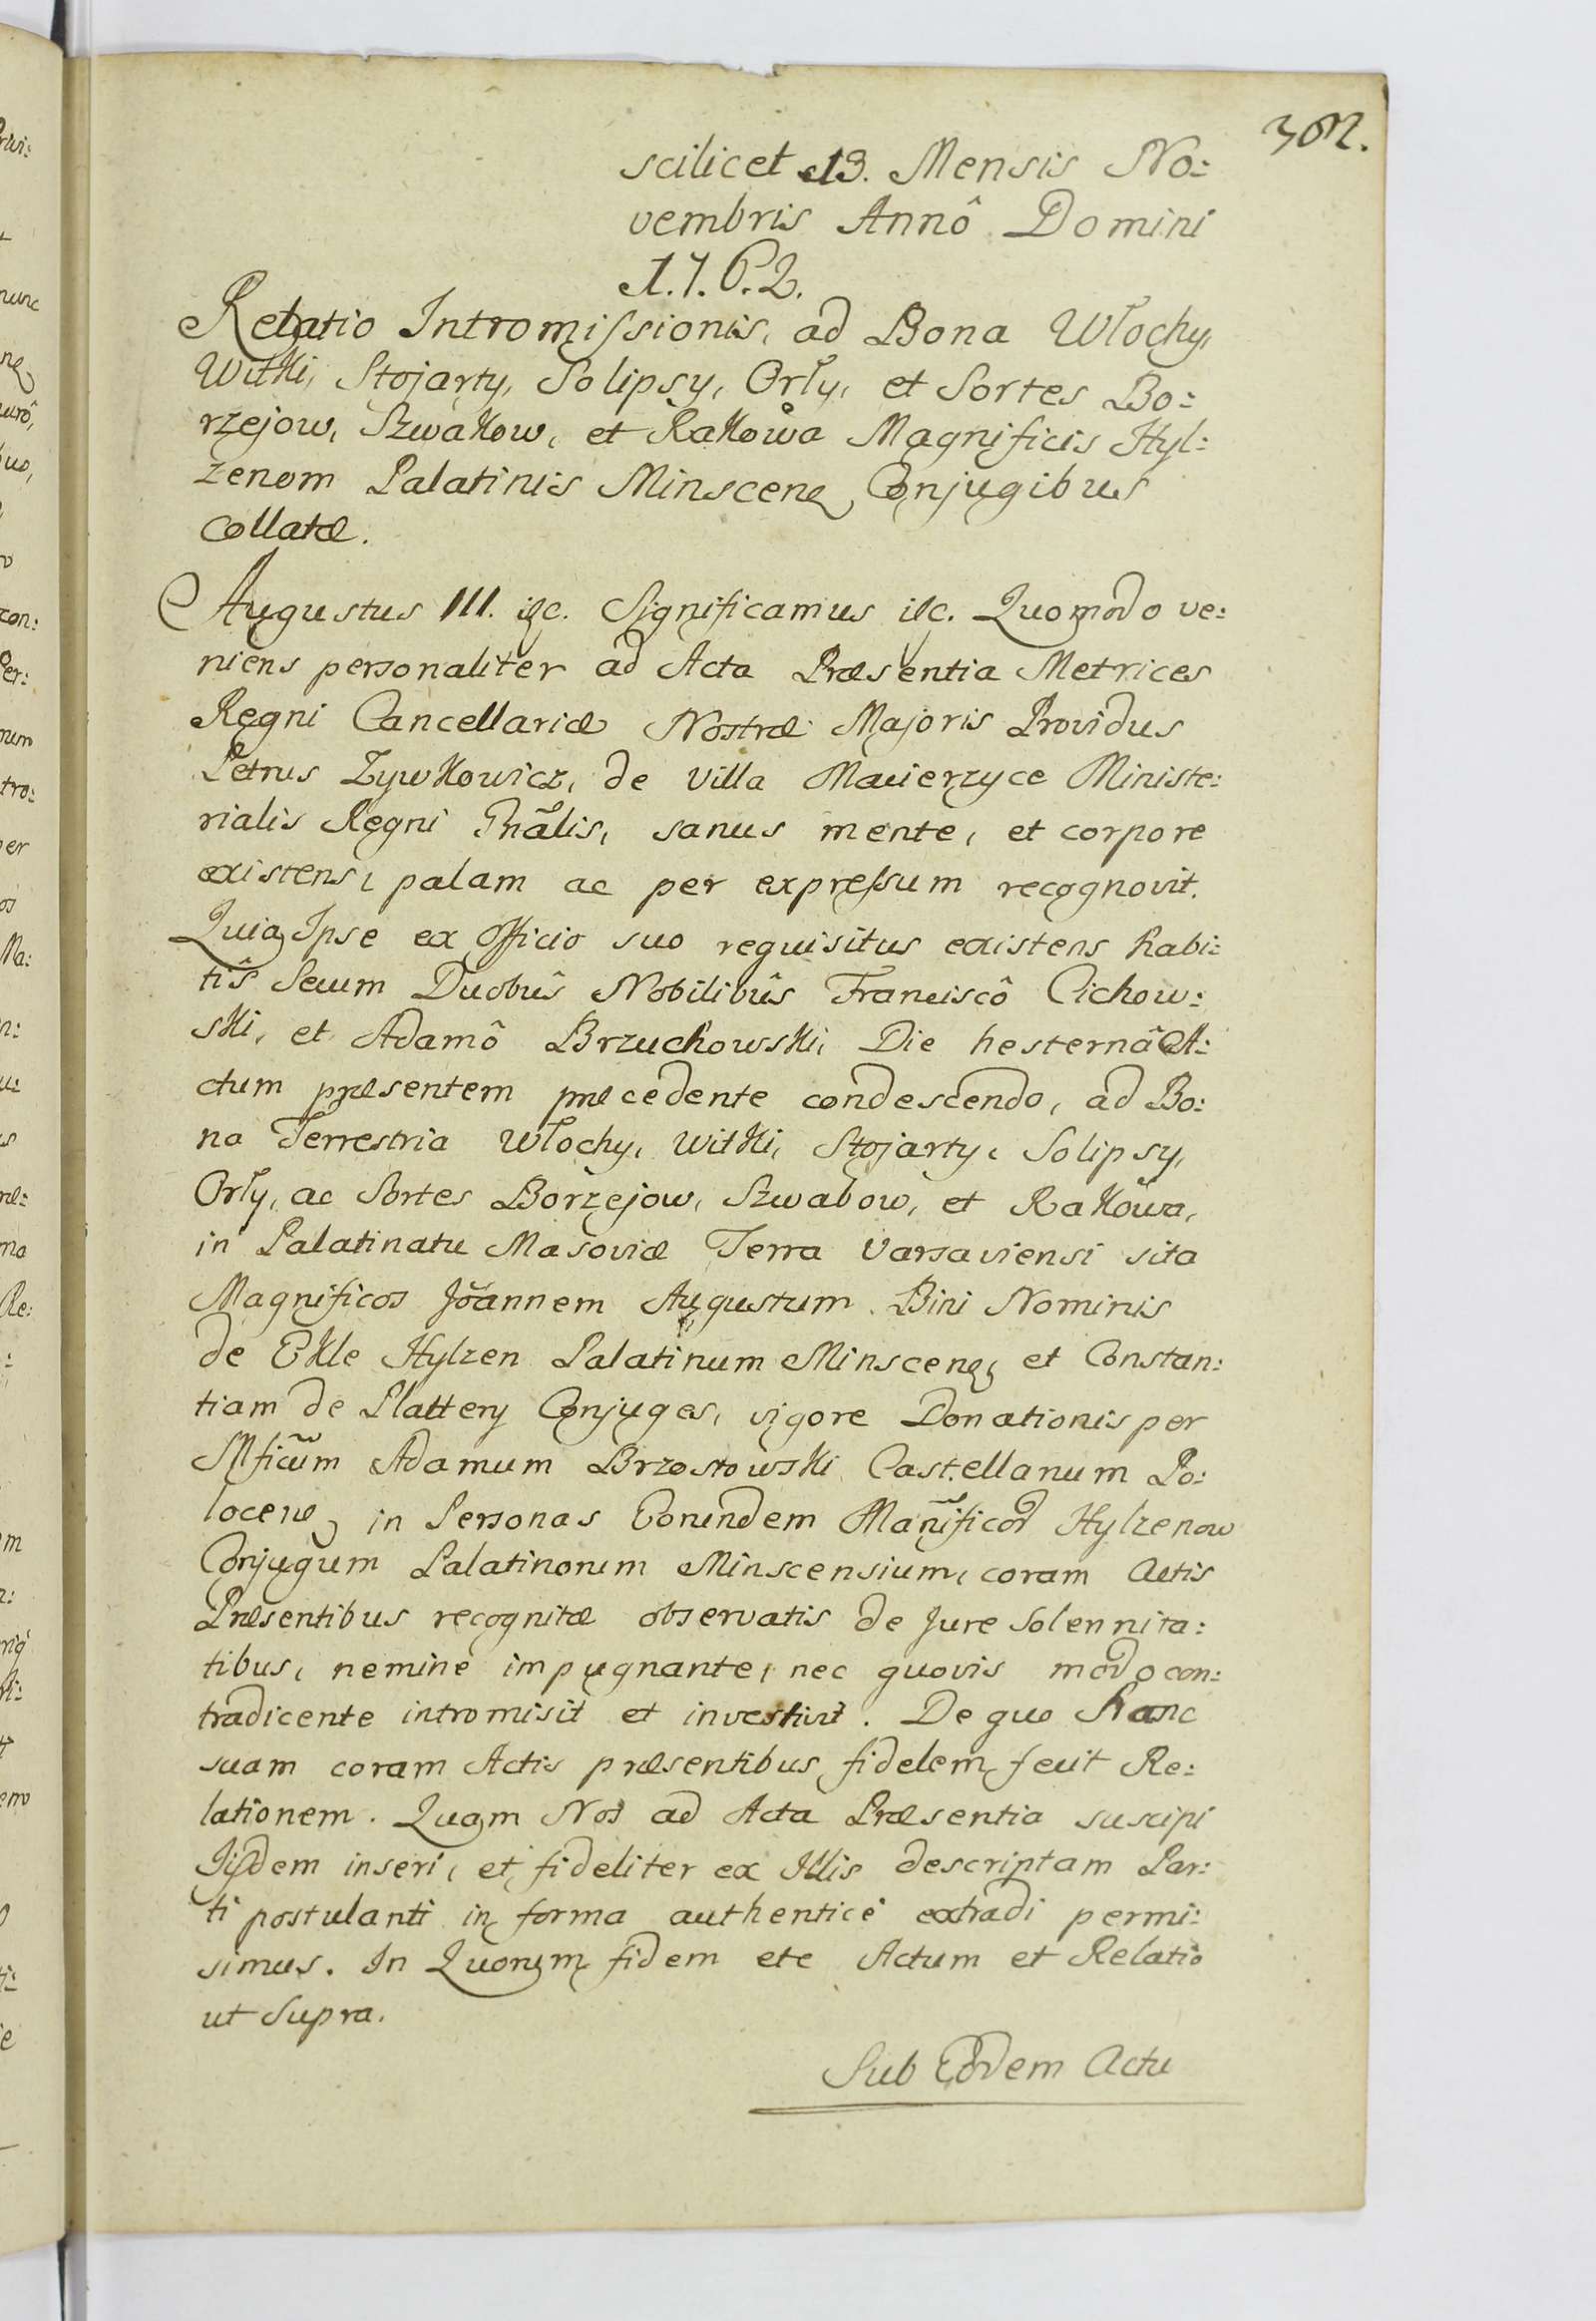 scilicet 13. Mensis No:
vembris Annô Domini
1.7.6.2.
Relatio Intromissionis, ad Bona Włochy,
Witki, Stojarty, Solipsy, Orły, et Sortes Bo:
rzejow, Szwakow, et Rakowa Magnificis Hyl:
zenom Palatinis Minscens, Conjugibus
Collatæ.
Augustus III. etc. Significamus etc. Quomodo ve:
niens personaliter ad Acta Præsentia Metrices
Regni Cancellariæ Nostræ Majoris Providus
Petrus Zywkowicz, de Villa Macierzyce Ministe:
rialis Regni Gnãlis, sanus mente, et corpore
existens, palam ac per expressum recognovit.
Quia Ipse ex officio suo requisitus existens habi:
tîs Secum Duobûs Nobilibûs Franciscô Cichow:
ski, et Adamô Brzuchowski, Die hesternâ A:
ctum præsentem præcedente condescendo, ad Bo:
na Terrestria Włochy, Witki, Stojarty, Solipsy,
Orły, ac Sortes Borzejow, Szwabow, et Rakowa,
in Palatinatu Masoviæ Terra Varsaviensi sita
Magnificos Joannem Augustum Bini Nominis
de Ekle Hylzen Palatinum Minscens, et Constan:
tiam de Plattery Conjuges, vigore Donationis per
Mficum Adamum Brzostowski Castellanum Po:
locens, in Personas Eorundem Mañificor Hylzenow
Conjugum Palatinorum Minscensium, coram Actis
Præsentibus recognitæ observatis de Jure Solennita:
tibus, nemine impugnante, nec quovis modo con:
tradicente intromisit et investivit. De quo Hanc
suam coram Actis præsentibus fidelem fecit Re:
lationem. Quam Nos ad Acta Præsentia suscipi
Iisdem inseri, et fideliter ex Illis descriptam Par:
ti postulanti in forma authentice extradi permi:
simus. In Quorum fidem etc Actum et Relatio
ut Supra.
Sub Eodem Actu